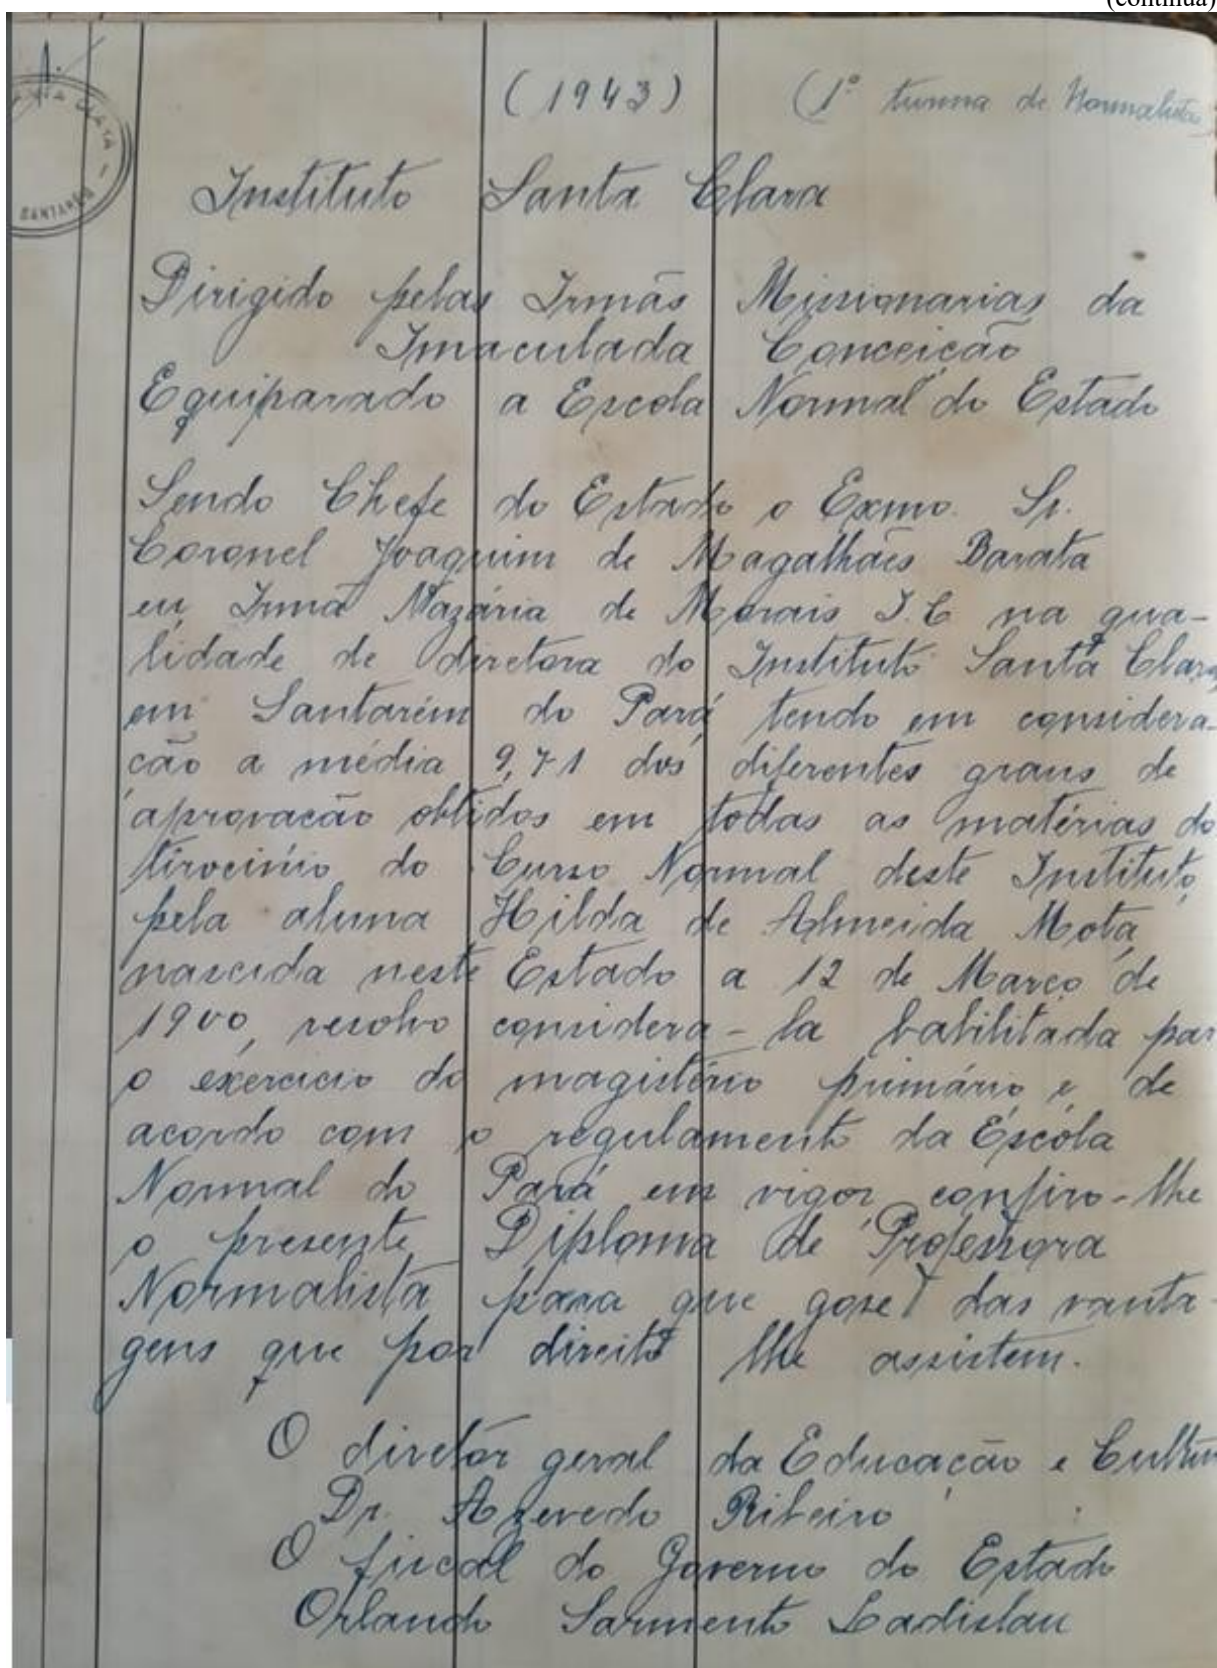 (continua)
1.
SANTA CLARA - SANTARÉM
(1943) (1º turma de Normalistas)
Instituto Santa Clara
Dirigido pelas Irmãs Missionarias da
Imaculada Conceição
Equiparado a Escola Normal do Estado
Sendo Chefe do Estado o Exmo. Sr.
Coronel Joaquim de Magalhães Barata
eu, Irmã Nazária de Morais I.C na qua-
lidade de diretora do Instituto Santa Clara,
em Santarém do Pará, tendo em considera-
ção a média 9,71 dos diferentes graus de
aprovação obtidos em todas as matérias do
tirocínio do Curso Normal deste Instituto,
pela aluna Hilda de Almeida Mota,
nascida neste Estado a 12 de Março de
1900, resolvo considera-la habilitada par
o exercício do magistério primário e, de
acordo com o regulamento da Escola
Normal do Pará em vigor, confiro-lhe
o presente Diploma de Professora
Normalista para que gose das vanta-
gens que por direito lhe assistem.
O diretor geral da Educação e Cultura
Dr. Azevedo Ribeiro
O fiscal do Governo do Estado
Orlando Sarmento Ladislau